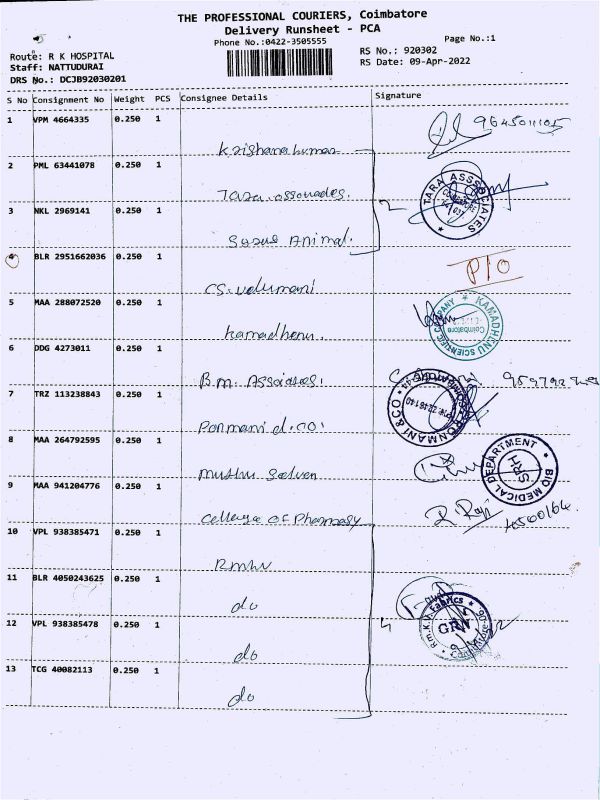 THE PROFESSIONAL COURIERS, Coimbatore
Delivery Runsheet - PCA
Phone No.:0422-3505555
Page No.:1
Route: R K HOSPITAL
Staff: NATTUDURAI
DRS No.: DCJB92030201
RS No.: 920302
RS Date: 09-Apr-2022
S No Consignment No Weight PCS Consignee Details Signature
1 VPM 4664335 0.250 1
Krishnakumar
2 PML 63441078 0.250 1
Tara associades.
TARA ASSSOCIATES
3 NKL 2969141 0.250 1
2
Animal.
4 BLR 2951662036 0.250 1
P/O
CS. Velumani
5 MAA 288072520 0.250 1
KAMADHENU SCIENTIFIC COMPANY
Coimbatore
Kamadhenu.
6 DDG 4273011 0.250 1
B.m.
7 TRZ 113238843 0.250 1
PONMANI & CO
Ponmani & CO!
8 MAA 264792595 0.250 1
BIO MEDICAL DEPARTMENT
SRH
Muthu Selvan
9 MAA 941204776 0.250 1
College of Pharmacy
10 VPL 938385471 0.250 1
Rmkv
11 BLR 4050243625 0.250 1
do
12 VPL 938385478 0.250 1
4
R.m.K.V. Fabrics
GRN
do
13 TCG 40082113 0.250 1
do